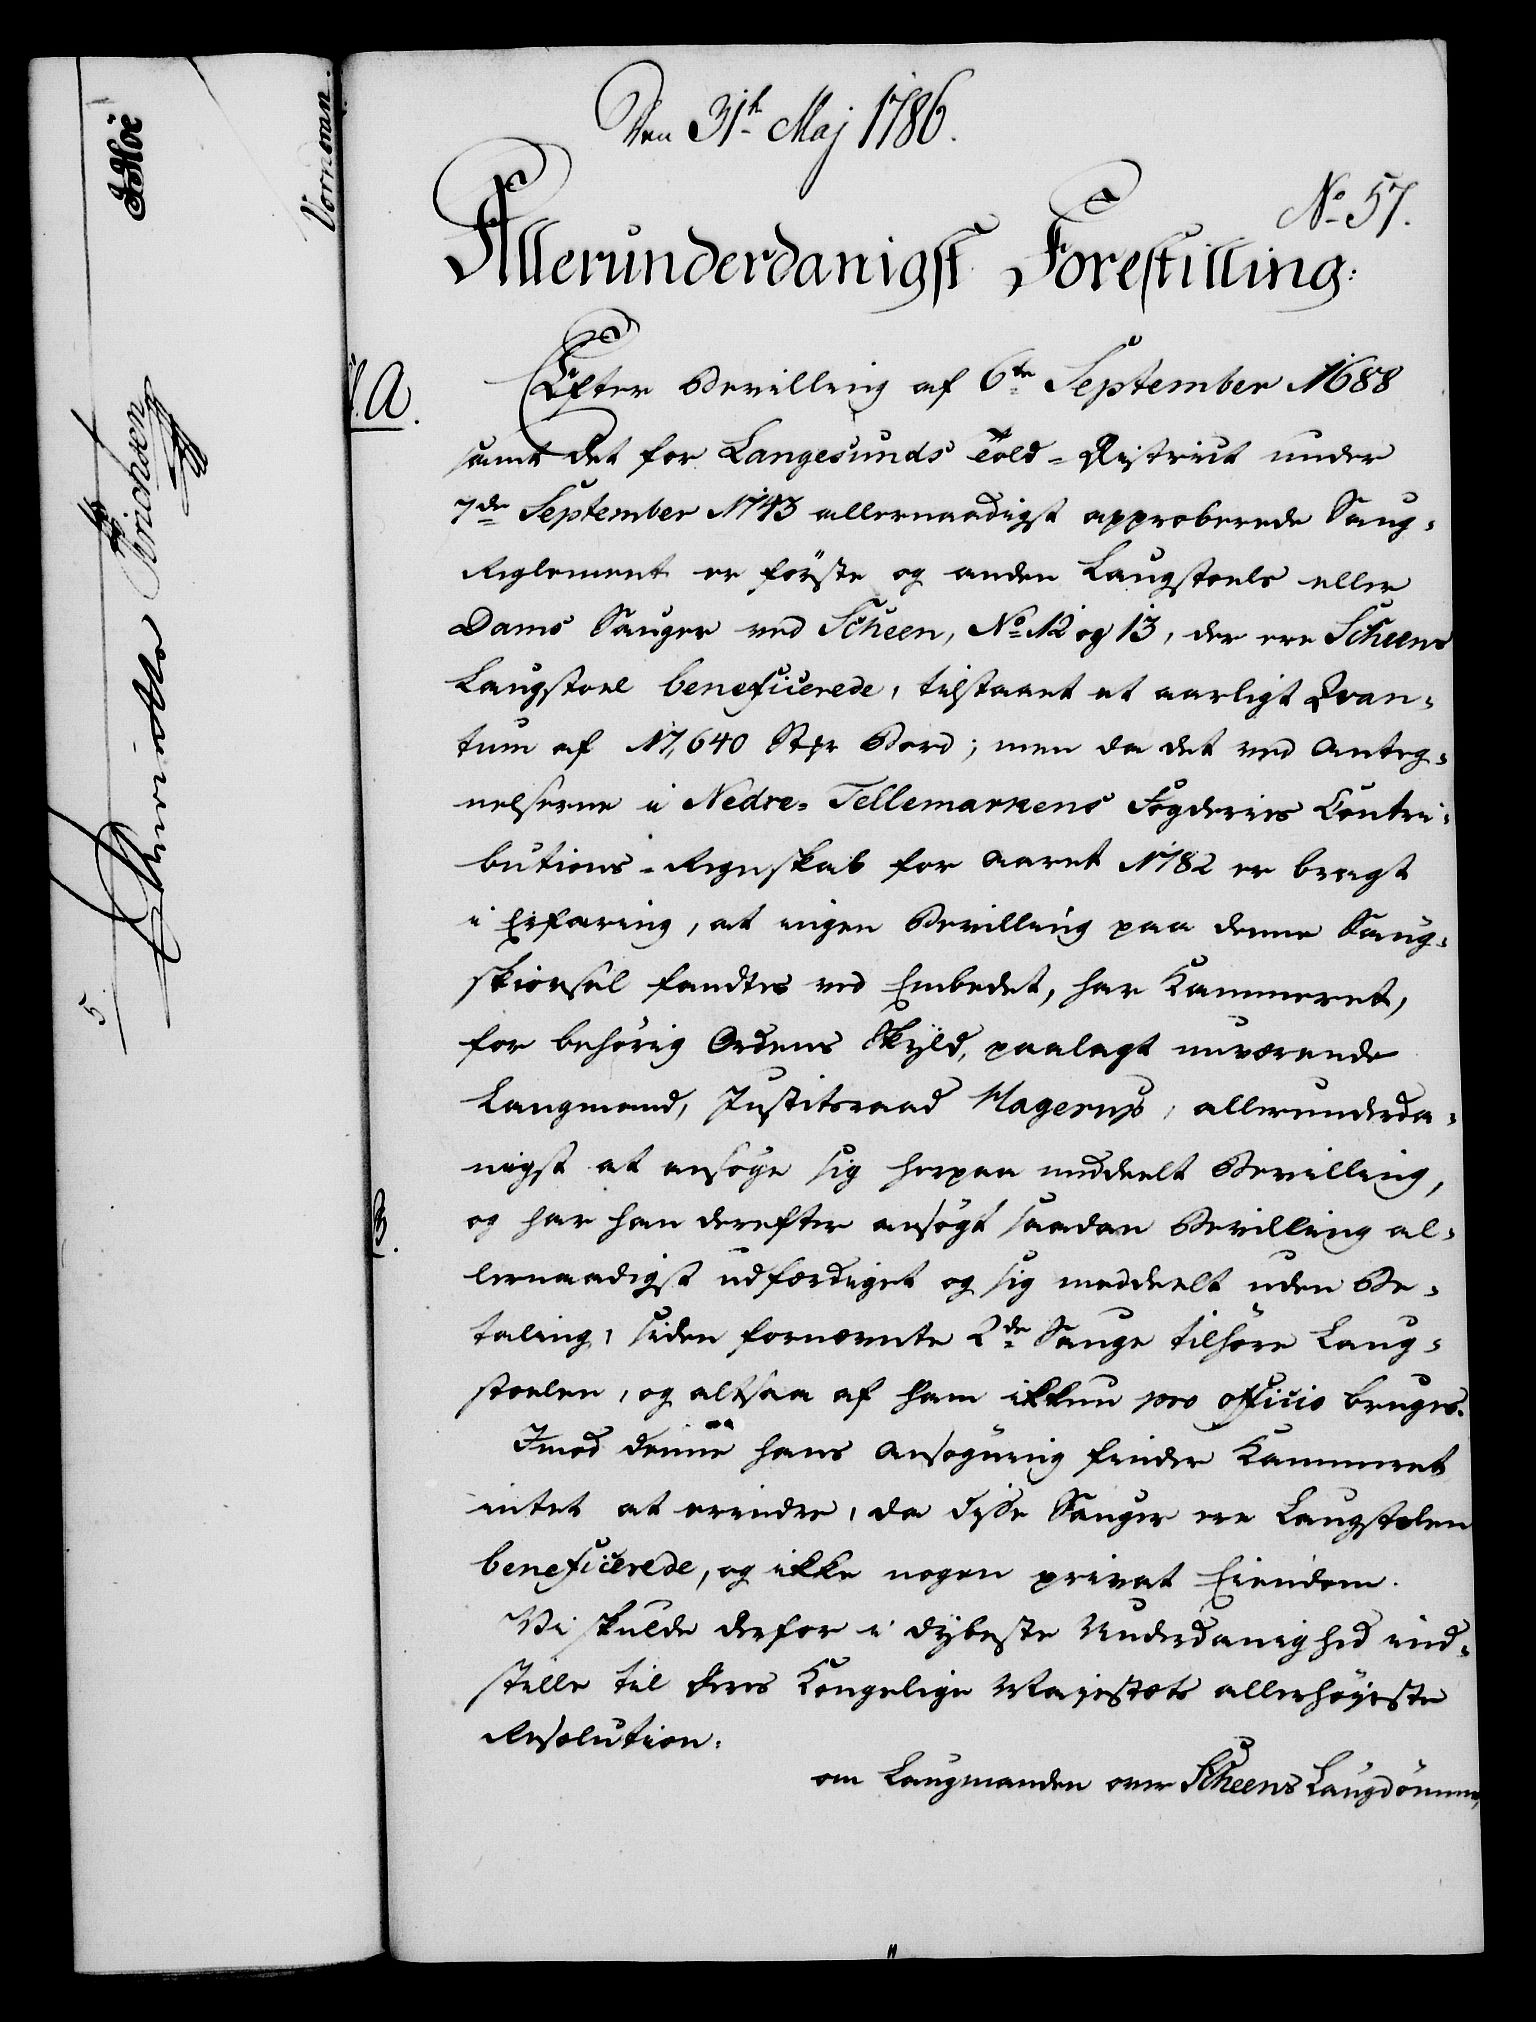 Den 31te Maj 1786.
No 57.
Allerunderdanigst Forestilling:
A.
Efter Bevilling af 6te September 1688
samt det for Langesunds Told-District under
7de September 1743 allernaadigst approberede Saug-
Reglement er första og anden Laugstoels eller
Dams Sauger ved Scheen, No 12 og 13, der ere Scheens
Laugstoel beneficerede, tilstaaet et aarligt Qvan-
tum af 17,640 Stkr Bord; men da det ved Anteg-
nelserne i Nedre-Tellemarkens Fogderies Contri-
butions-Regnskab for Aaret 1782 er bragt
i Erfaring, at ingen Bevilling paa denne Saug-
skiørsel fandtes ved Embedet, har Kammeret,
for behörig Ordens Skÿld, paalagt nuværende
Laugmand, Justitsraad Hagerup, allerunderda-
nigst at ansöge sig herpaa meddeelt Bevilling,
B.
og har han derefter ansögt saadan Bevilling al-
lernaadigst udfærdiget og sig meddeelt uden Be-
taling, siden fornævnte 2de Sauge tilhöre Laug-
stoelen, og altsaa af ham ikkun pro officio bruges.
Imod denne hans Ansögning finder Kammeret
intet at erindre, da disse Sauger ere Laugstolen
beneficerede, og ikke nogen privat Eiendom.
Vi skulde derfor i dybeste Underdanighed ind-
stille til Deres Kongelige Majestæts allerhöyeste
Resolution:
om Laugmanden over Scheens Laugdömme,
JHoë
Vorndran.
Erichsen
5.